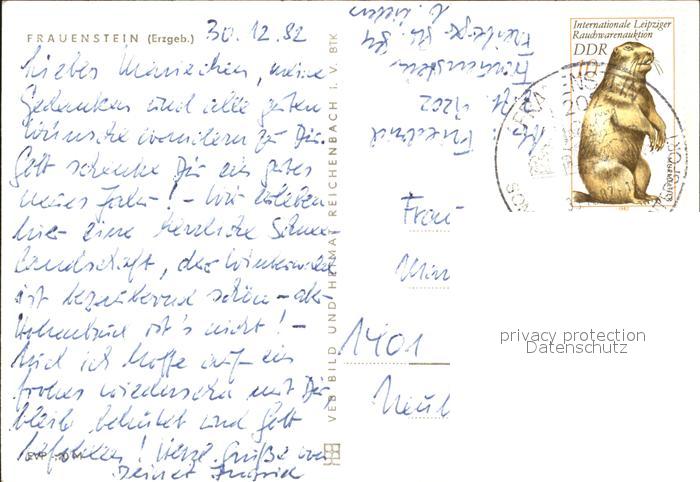 FRAUENSTEIN (Erzgeb.) 30.12.82
liebes Mariechen, meine
Gedanken und alle guten
Wünsche wandern zu Dir.
Gott schenke Dir ein gutes
neues Jahr! – Wir erleben
hier eine herrliche Schnee-
landschaft, der Winterwald
ist bezaubernd schön – aber
ist's nicht! –
Und ich hoffe auf ein
frohes Wiedersehn mit Dir,
bleib behütet und Gott
befohlen! Herzl. Grüße von
Deiner
EVP
VEB BILD UND HEIMAT REICHENBACH I. V. BTK
Frauenstein
9202
Internationale Leipziger
Rauchwarenauktion
DDR 10
Murmeltier
1982
FRAUENSTEIN
Frau
1401
Neuh
privacy protection
Datenschutz